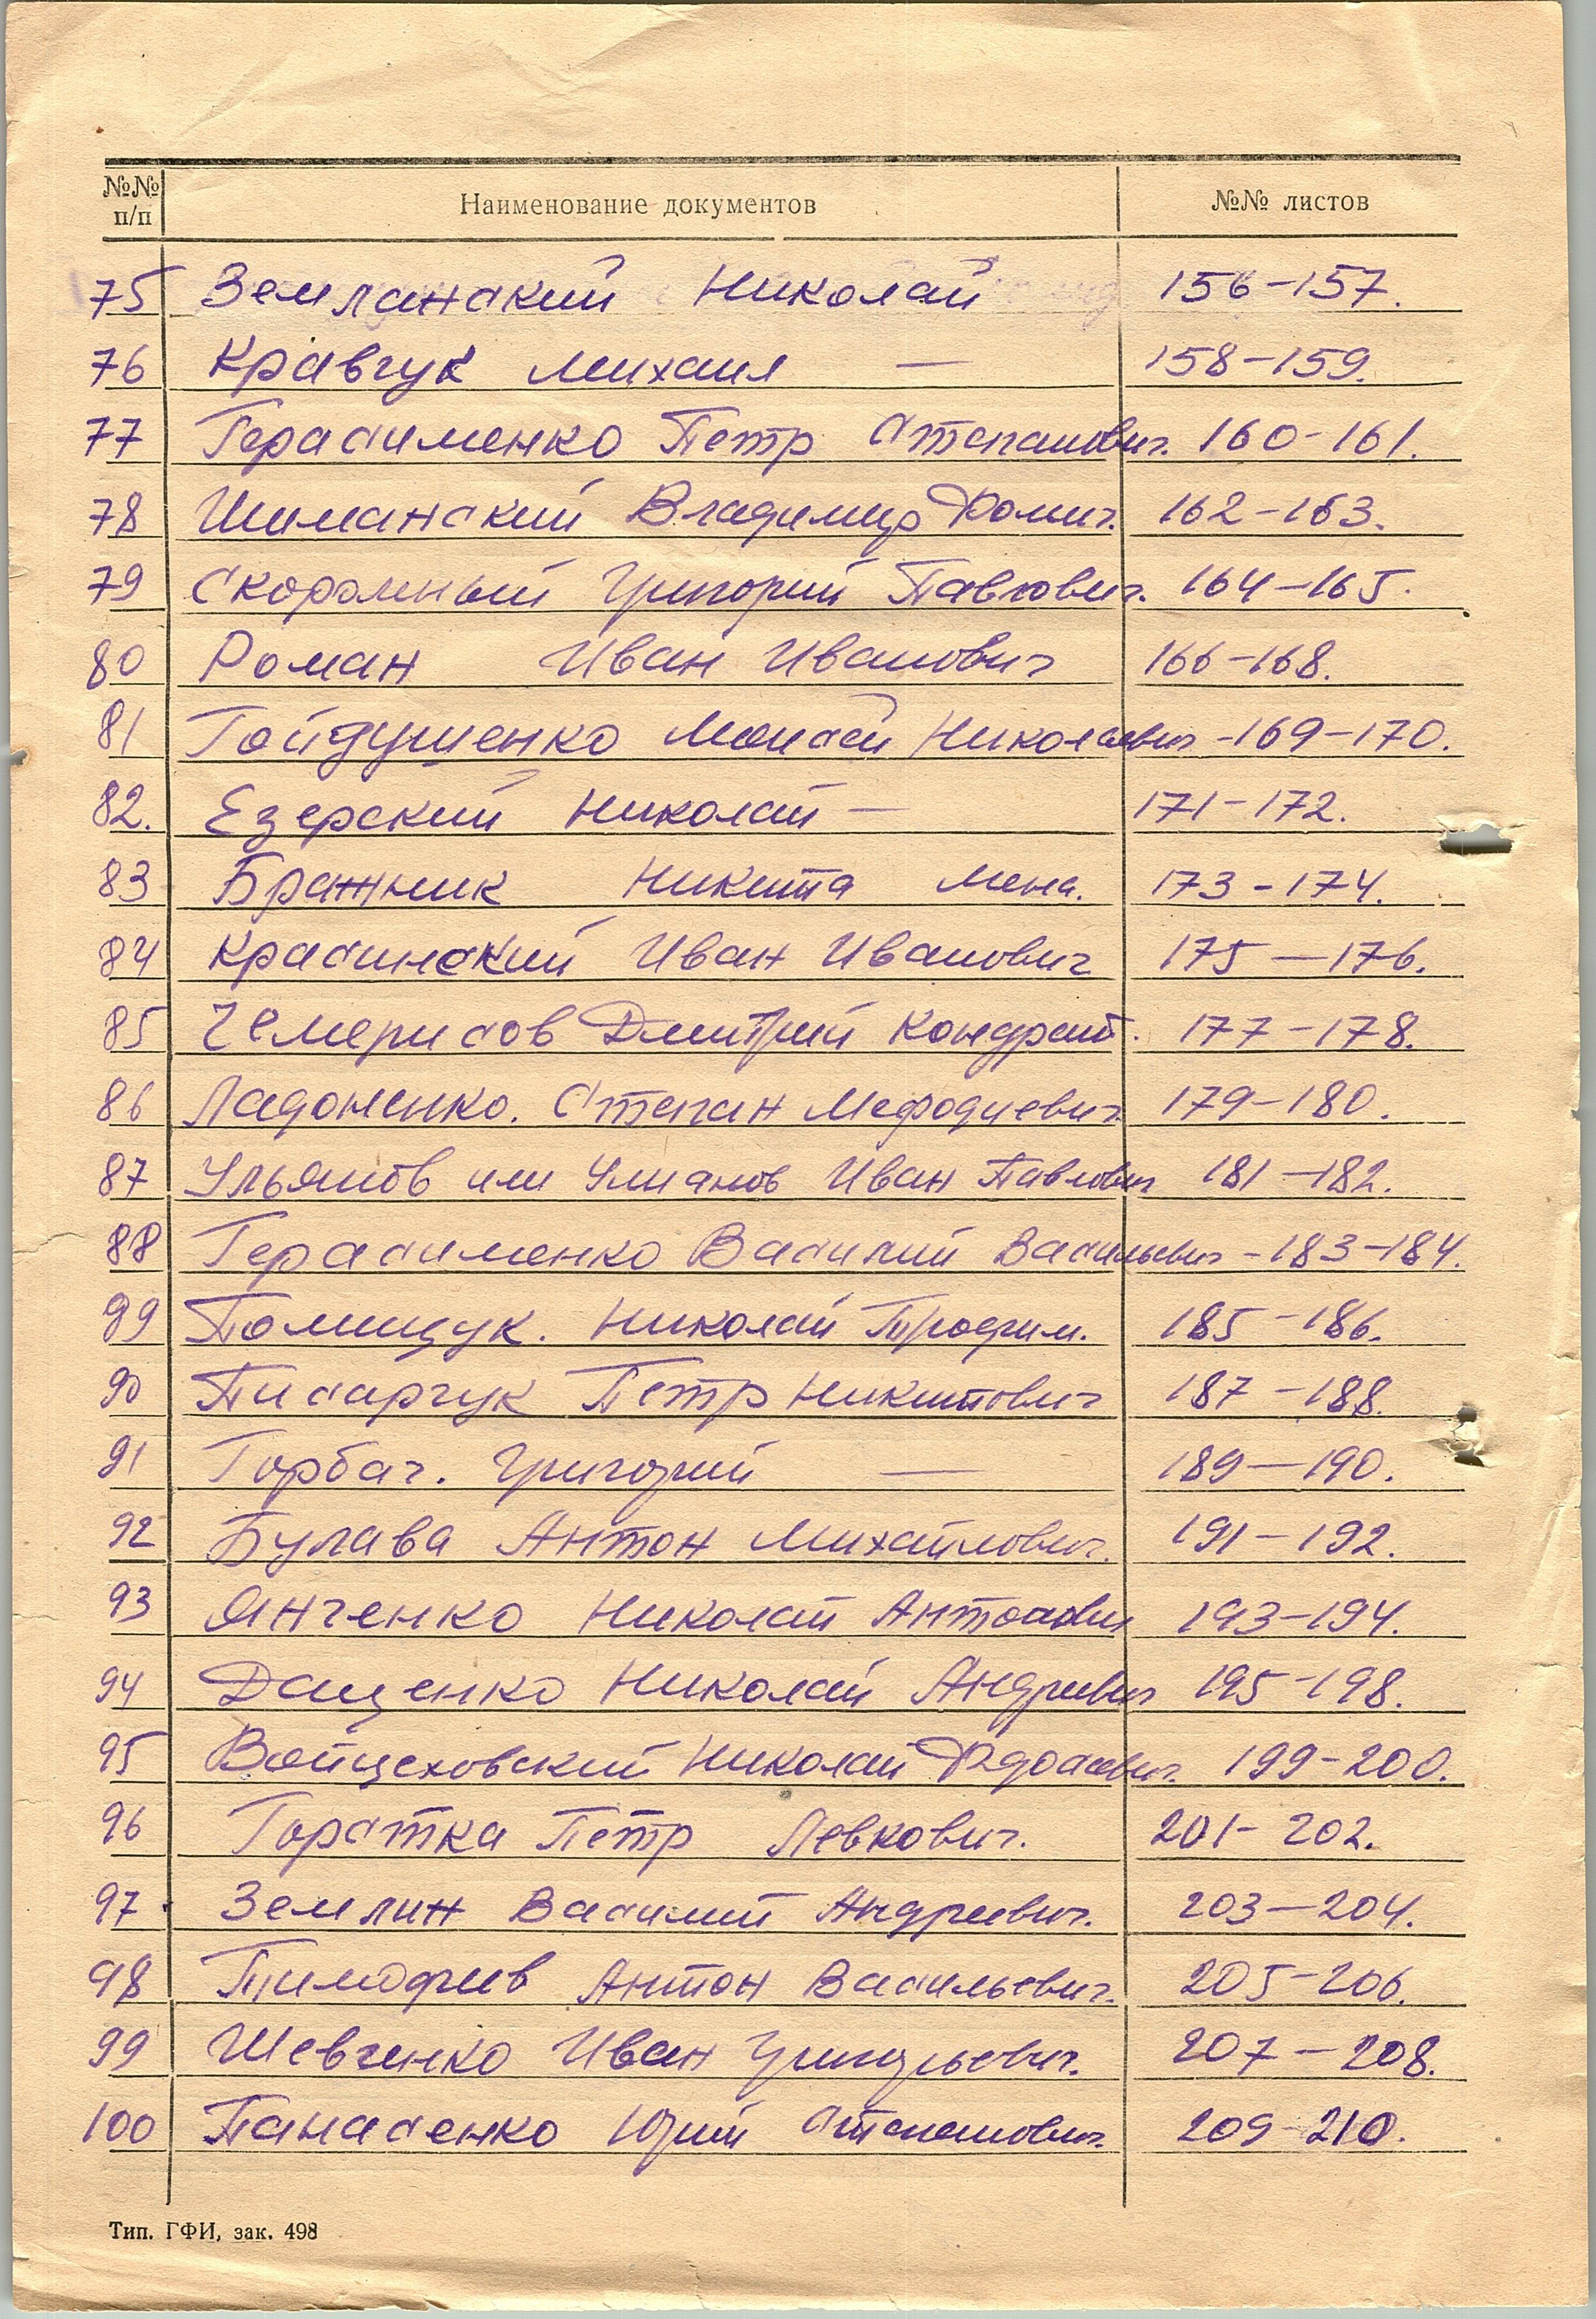 №№ п/п Наименование документов №№ листов
75 Землянский Николай 156-157.
76 Кравчук Михаил — 158-159.
77 Герасименко Петр Степанович. 160-161.
78 Шиманский Владимир Фомич. 162-163.
79 Скоромный Григорий Павлович. 164-165.
80 Роман Иван Иванович 166-168.
81 Гайдушенко Моисей Николаевич -169-170.
82. Езерский Николай — 171-172.
83 Бражник Никита 173-174.
84 Красинский Иван Иванович 175-176.
85 Чемерисов Дмитрий Кондрат. 177-178.
86 Ладоненко. Степан Мефодиевич. 179-180.
87 Ульянов или Улианов Иван Павлович 181-182.
88 Герасименко Василий Васильевич -183-184.
89 Полищук. Николай Трофим. 185-186.
90 Писарчук Петр Никитович 187-188.
91 Горбач. Григорий — 189-190.
92 Булава Антон Михайлович. 191-192.
93 Янченко Николай Антонович 193-194.
94 Даценко Николай Андреевич 195-198.
95 Войцеховский Николай 199-200.
96 Петр Левкович. 201-202.
97 Землин Василий Андреевич. 203-204.
98 Тимофеев Антон Васильевич. 205-206.
99 Шевченко Иван Григорьевич. 207-208.
100 Панасенко Юрий Степанович. 209-210.
Тип. ГФИ, зак. 498